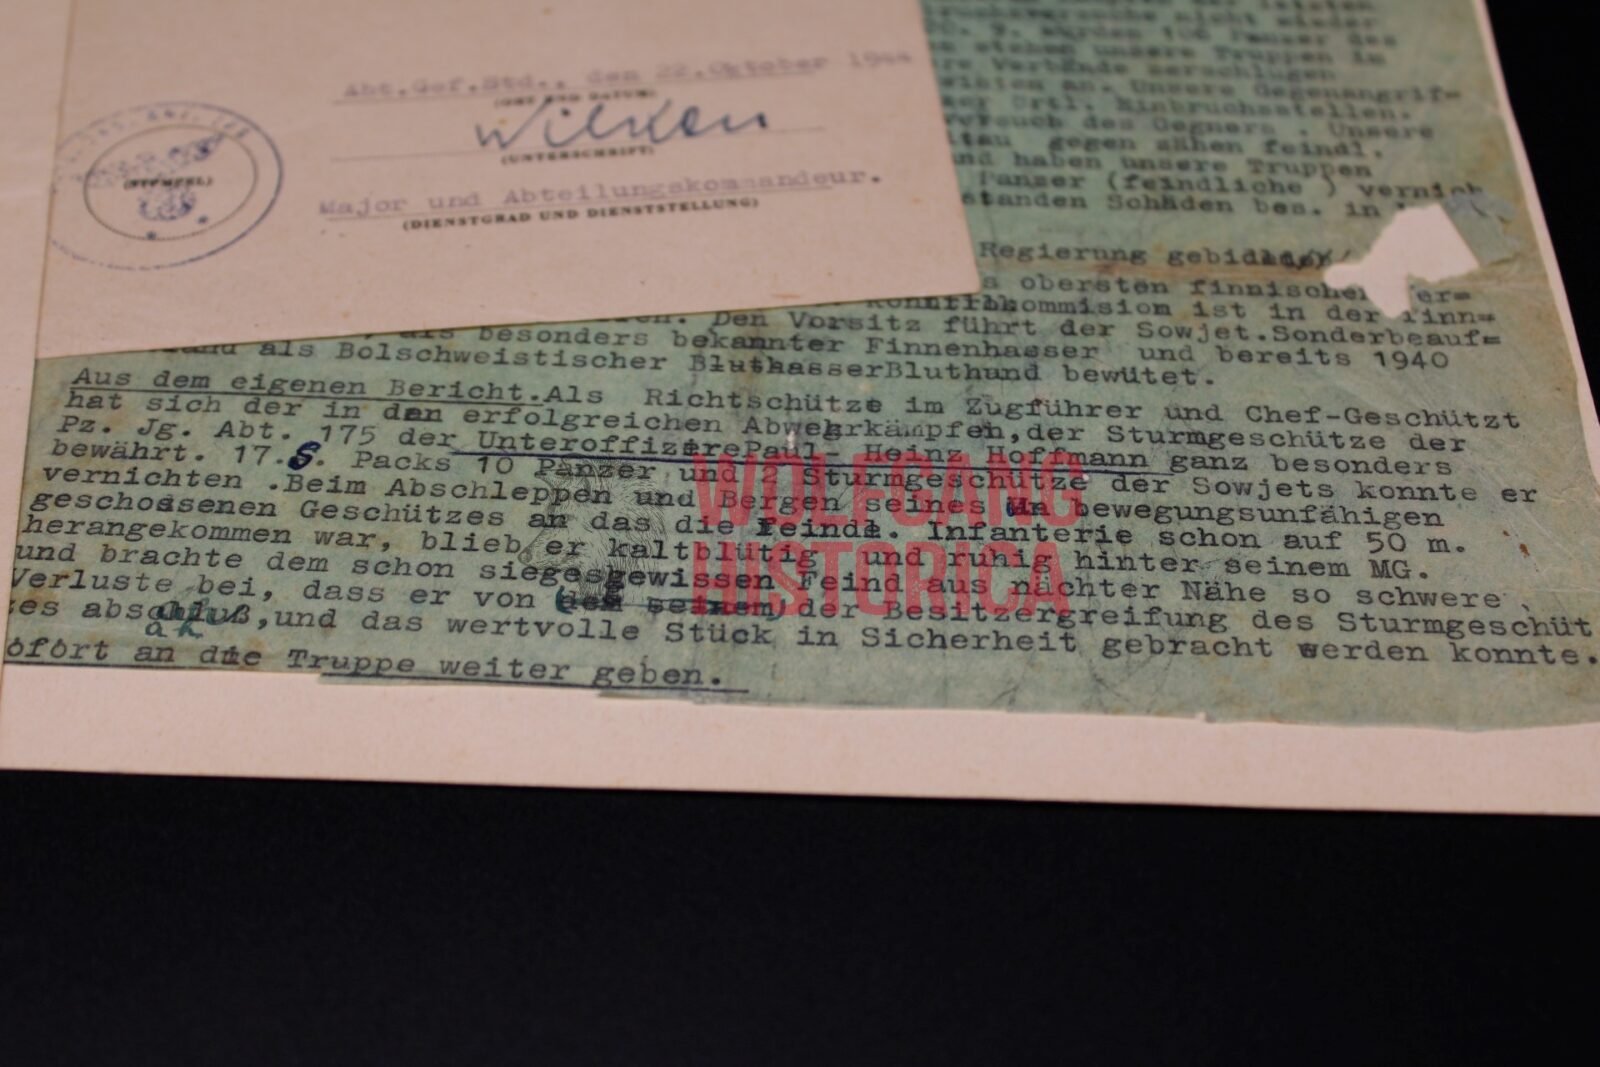 Abt.Gef.Std., den 22.Oktober 1944
(ORT UND DATUM)
Wilken
(UNTERSCHRIFT)
Major und Abteilungskommandeur.
(DIENSTGRAD UND DIENSTSTELLUNG)
(STEMPEL)
nicht wieder
wurden 106 Panzer des
stehen unsere Truppen in
Verbände zerschlugen
an. Unsere Gegenangrif=
Ortl. Einbruchsstellen.
des Gegners . Unsere
gegen zähen feindl.
und haben unsere Truppen
Panzer (feindliche ) vernich
standen Schäden bes. in
Regierung gebildet
s obersten finnischen er=
Kontrollkommision ist in der Finn=
Den Vorsitz führt der Sowjet.Sonderbeauf=
als besonders bekannter Finnenhasser und bereits 1940
land als Bolschweistischer BluthasserBluthund bewütet.
Aus dem eigenen Bericht.Als Richtschütze im Zugführer und Chef-Geschützt
hat sich der in den erfolgreichen Abwehrkämpfen,der Sturmgeschütze der
Pz. Jg. Abt. 175 der Unteroffiziere Paul- Heinz Hoffmann ganz besonders
bewährt. 17.S. Packs 10 Panzer und 2 Sturmgeschütze der Sowjets konnte er
vernichten .Beim Abschleppen und Bergen seines Un bewegungsunfähigen
geschossenen Geschützes an das die feindl. Infanterie schon auf 50 m.
herangekommen war, blieb er kaltblütig und ruhig hinter seinem MG.
und brachte dem schon siegesgewissen Feind aus nächter Nähe so schwere
Verluste bei, dass er von (dem seinem) der Besitzergreifung des Sturmgeschüt
zes abschluß,und das wertvolle Stück in Sicherheit gebracht werden konnte.
ofort an die Truppe weiter geben.
WOLFGANG
HISTORICA